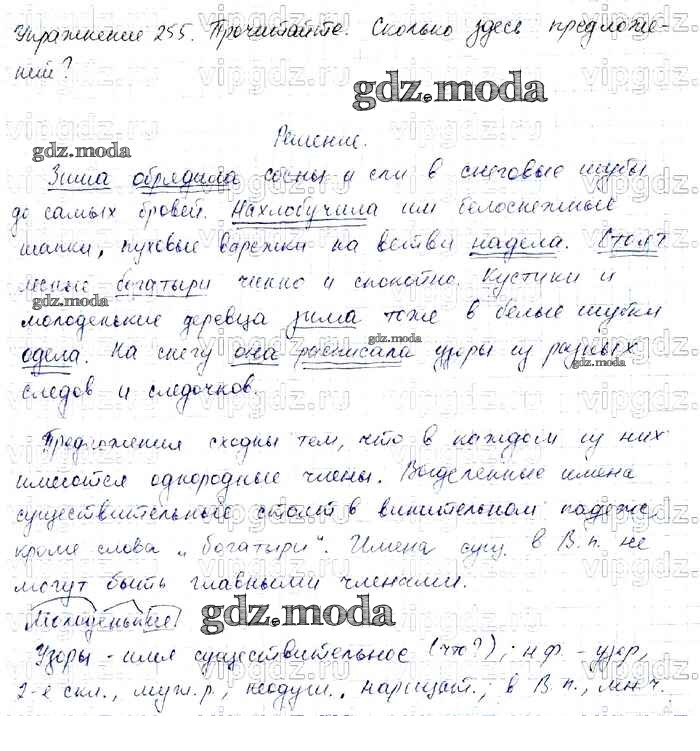 Упражнение 255. Прочитайте. Сколько здесь предложе-
ний?
gdz.moda
Решение.
gdz.moda
Зима обрядила сосны и ели в снеговые шубы
до самых бровей. Нахлобучила им белоснежные
шапки, пуховые варежки на ветви надела. Стоят
лесные богатыри чинно и спокойно. Кустики и
gdz.moda
молоденькие деревца зима тоже в белые шубки
gdz.moda
одела. На снегу она расписала узоры из разных
следов и следочков.
Предложения сходны тем, что в каждом из них
имеются однородные члены. Выделенные имена
существительные стоят в винительном падеже,
кроме слова "богатыри". Имена сущ. в В.п. не
могут быть главными членами.
Молоденькие
gdz.moda
Узоры - имя существительное (что?), н.ф. - узор,
2-е скл., муж.р., неодуш., нарицат.; в В.п., мн.ч.
vipgdz.ru